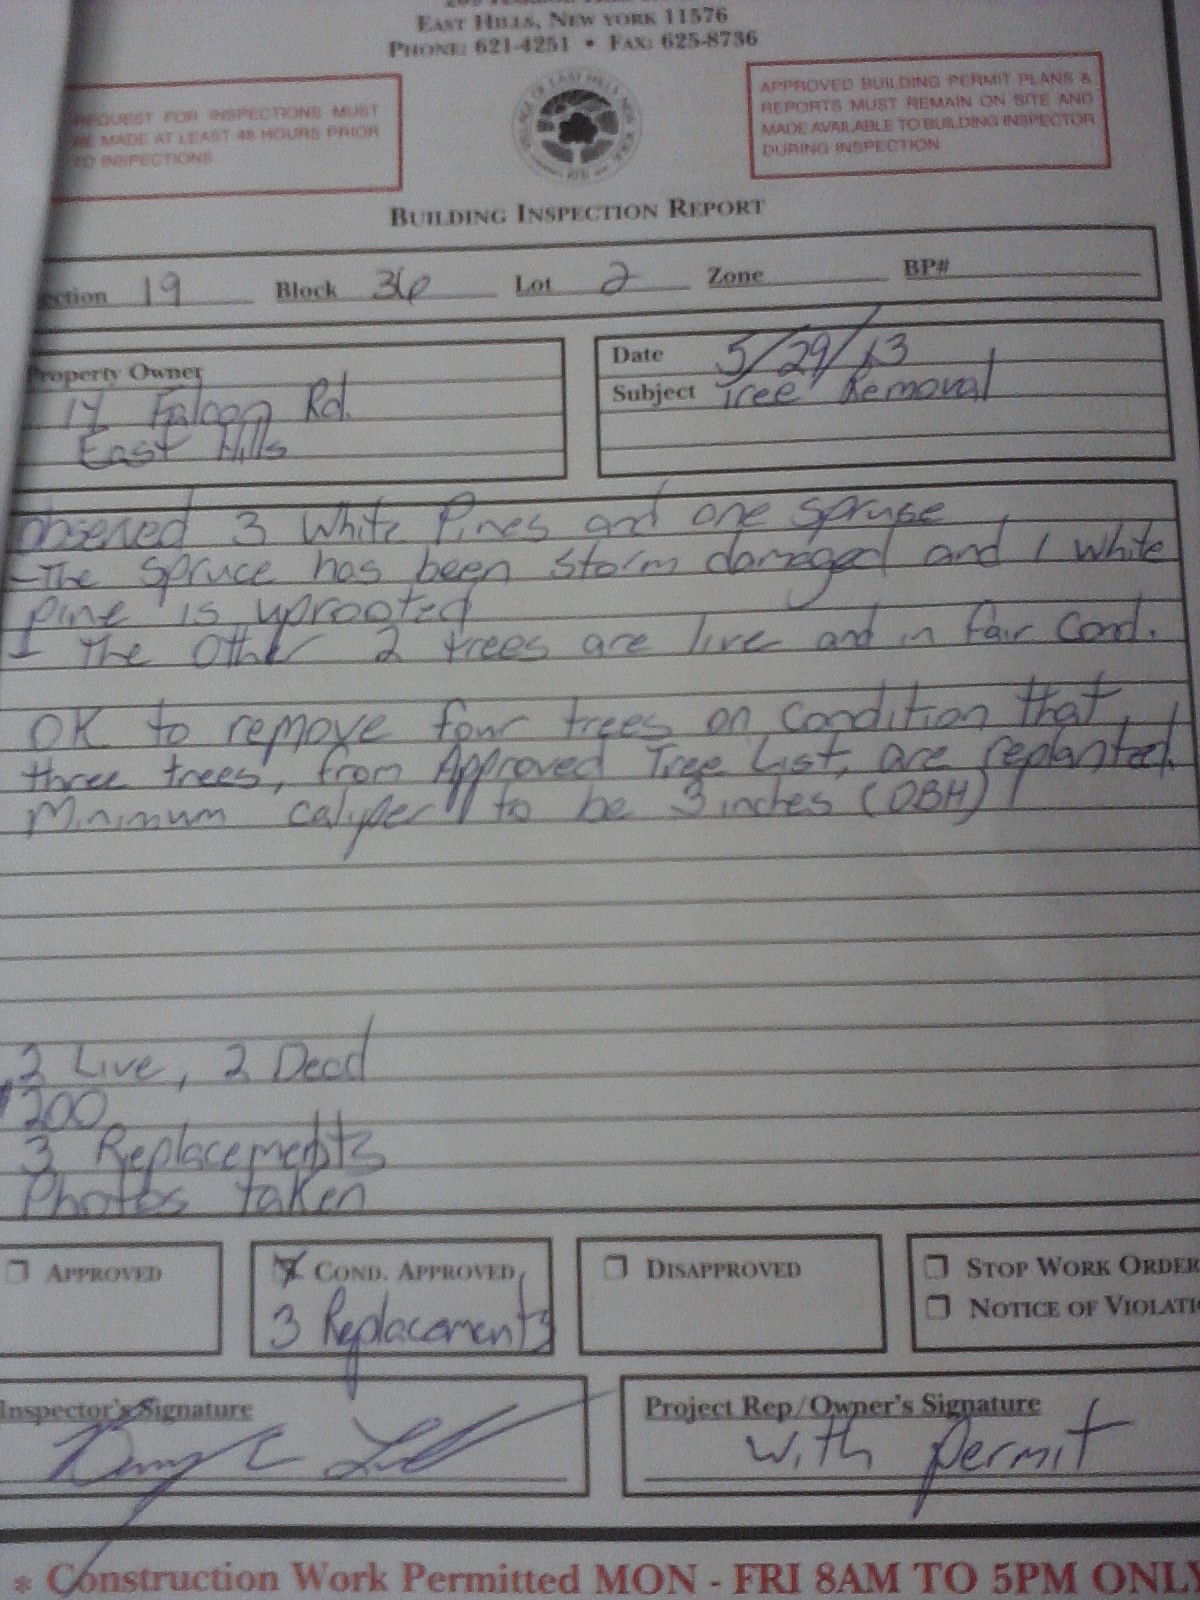 EAST HILLS, NEW YORK 11576
PHONE: 621-4251 • FAX: 625-8736
REQUEST FOR INSPECTIONS MUST
BE MADE AT LEAST 48 HOURS PRIOR
TO INSPECTIONS
VILLAGE OF EAST HILLS, NEW YORK
APPROVED BUILDING PERMIT PLANS &
REPORTS MUST REMAIN ON SITE AND
MADE AVAILABLE TO BUILDING INSPECTOR
DURING INSPECTION
BUILDING INSPECTION REPORT
ction 19 Block 36 Lot 2 Zone BP#
Property Owner
Falcon Rd.
East Hills
Date 5/29/13
Subject Tree Removal
observed 3 White Pines and one spruse
- The spruce has been storm damaged and 1 white
pine is uprooted
- The other 2 trees are live and in fair cond.
OK to remove four trees on condition that
three trees, from Approved Tree List, are replanted.
Minimum calyper to be 3 inches (DBH)
2 Live, 2 Dead
$200
3 Replacements
Photos taken
APPROVED
COND. APPROVED
3 Replacements
DISAPPROVED
STOP WORK ORDER
NOTICE OF VIOLATI
Inspector's Signature
Project Rep/Owner's Signature
with permit
* Construction Work Permitted MON - FRI 8AM TO 5PM ONLY